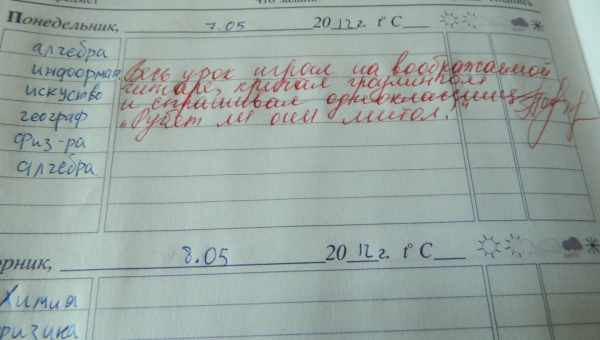 Понедельник, 7.05 2012 г. t° C
алгебра
информат
искуство
географ
физ-ра
алгебра
Весь урок играл на воображаемой
гитаре, кричал гроулингом
и спрашивал одноклассниц
"Рубят ли они митол".
орник, 8.05 2012 г. t° C
Химия
физика